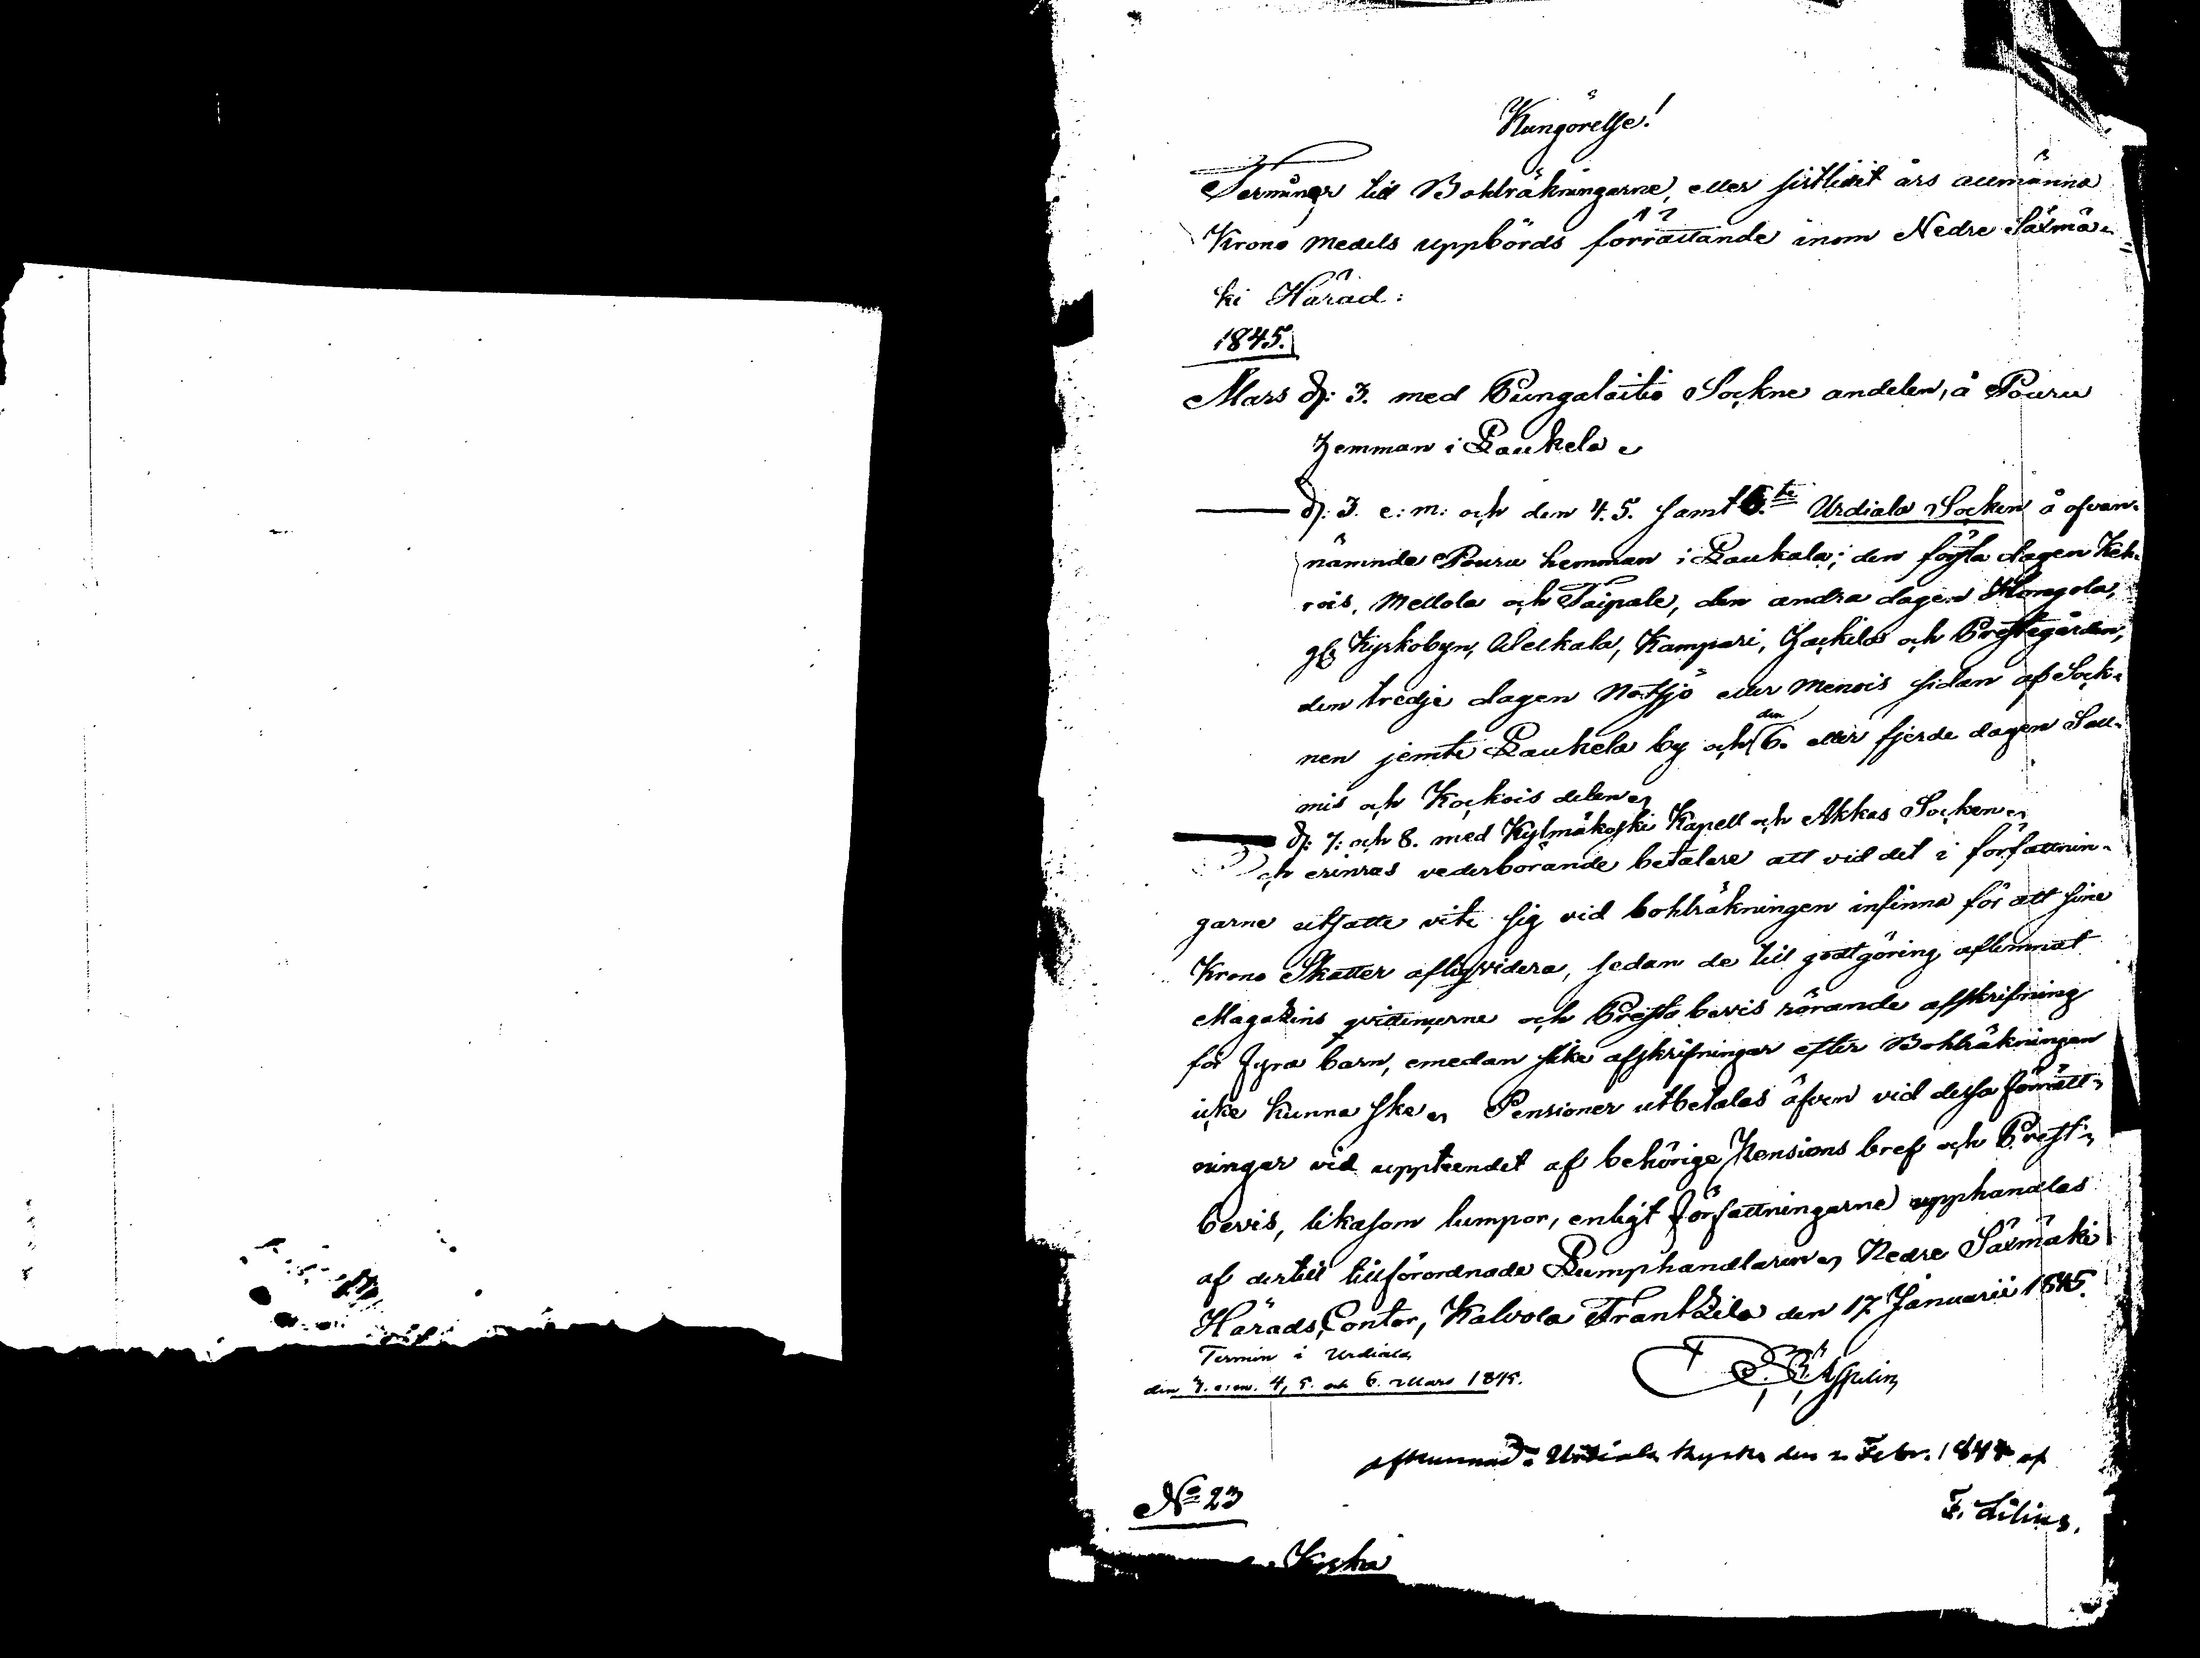 Kungörelse!
Terminer till Bohlräkningarne, eller sistlidit års allmänna
Krono medels uppbörds förrättande inom Nedre Säxmä-
ki Härad:
1845.
Mars d: 3. med Pungalaitio Sockne andelen, å Pouru
hemman i Laukela
d: 3. e: m: och den 4. 5. samt 6.te Urdiala Socken å ofvan-
nämnde Pouru hemman i Laukala; den första dagen Keh-
rois, Mellola och Taipale, den andra dagen Hongola,
Kyrkobyn, Kampari, och Prestegården,
den tredje dagen Notsjö eller Menois sidan af Sock-
nen jemte Laukela by och den 6. eller fjerde dagen Sall-
mis och Kockois delen
d: 7: och 8. med Kylmäkoski Kapell och Akkas Socken
och erinras vederbörande betalare att vid det i författnin-
garne utsatte vite sig vid bohlräkningen infinna för att sine
Krono Skatter afliqvidera, sedan de till godtgöring aflemnat
Magazins qvittencerne och Presta bevis rörande afskrifning
för fyra barn, emedan slike afskrifningar efter Bohlräkningen
icke kunna ske Pensioner utbetalas äfven vid dessa förrätt-
ningar vid uppteendet af behörige Pensions bref och Prest-
bevis, likasom lumpor, enligt författningarne upphandlas
af dertill tillförordnade Lumphandlaren Nedre Säxmäki
Härads Contor, Kalvola Frantzila den 17 Januarii 1845.
Termin i Urdiala
den 3. e: m. 4, 5. och 6. Mars 1845.
Asplin
afkunnad i Urdiala kyrka den 2 Febr. 184 af
No 23
F. Lilius.
Kyrka